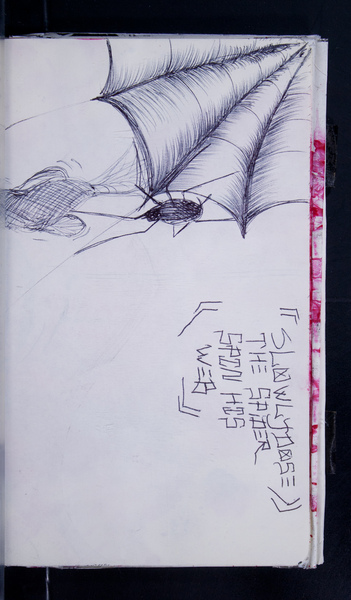 "SLOWLY DOSE
THE SPIDER
SPIN HIS
WEB"